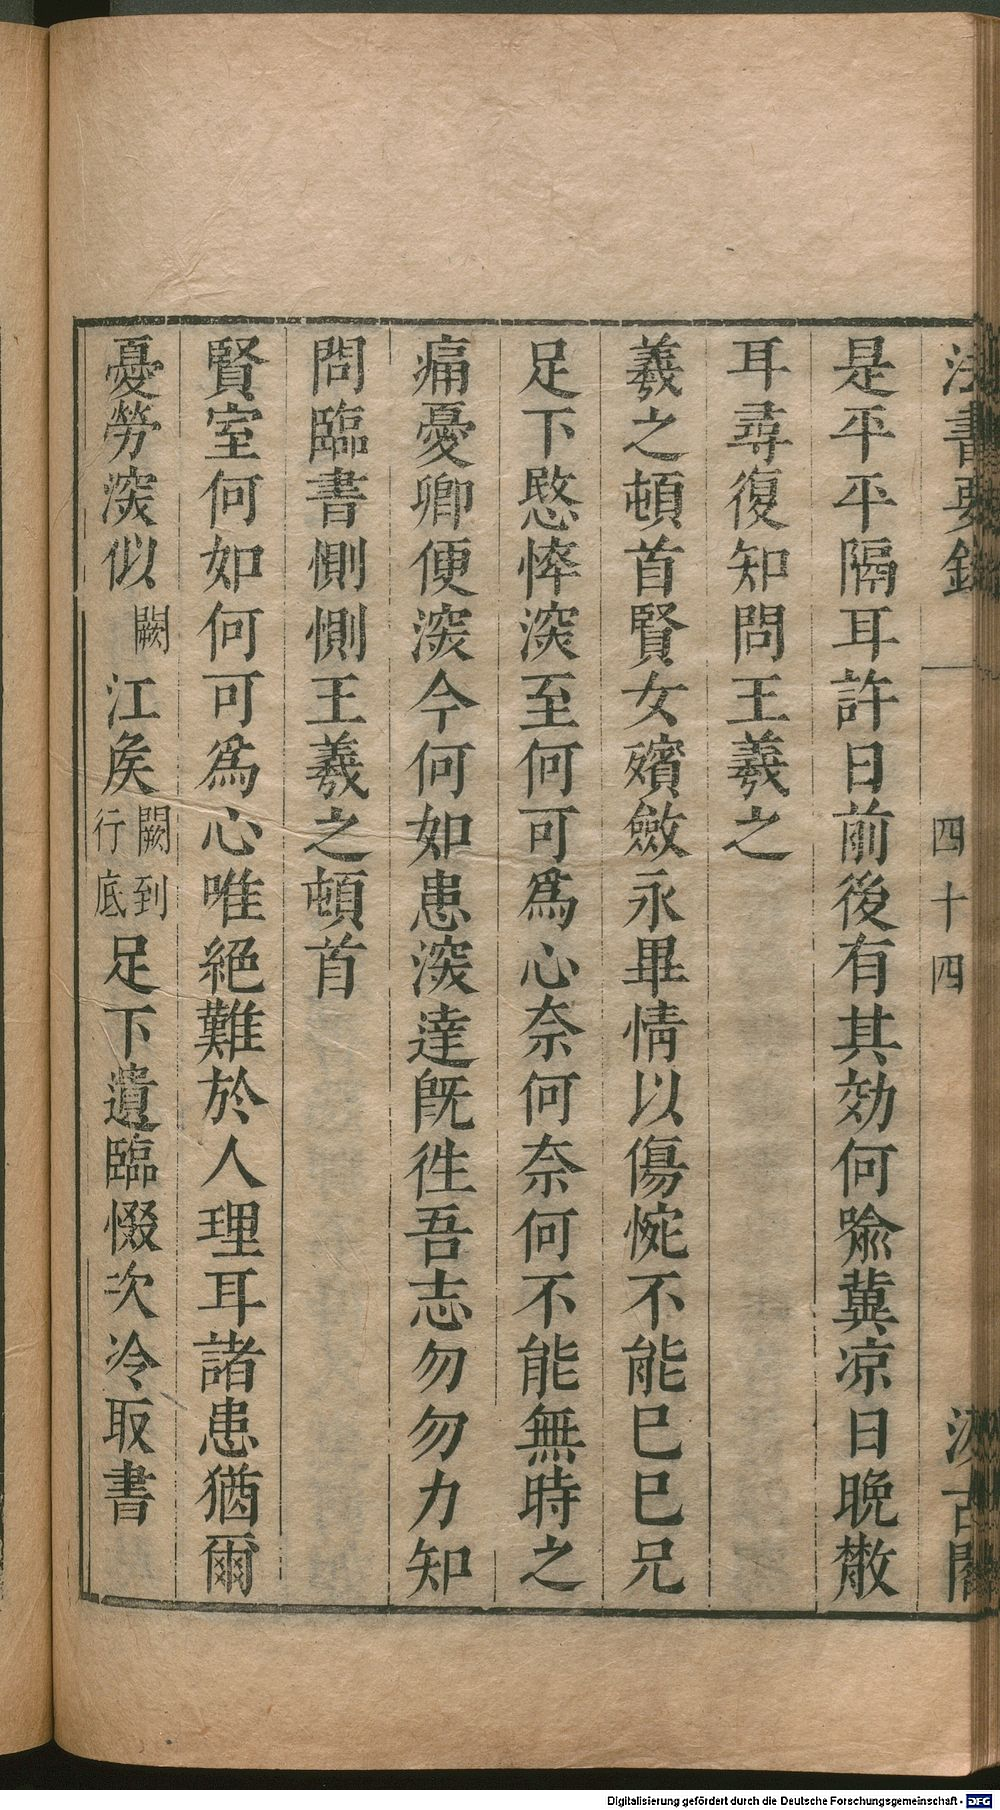 法書要録
四十四
汲古閣
是平平隔耳許日前後有其効何喩冀凉日晩散
耳尋復知問王羲之
羲之頓首賢女殯斂永畢情以傷惋不能巳巳兄
足下愍悴深至何可爲心奈何奈何不能無時之
痛憂卿便深今何如患深達既徃吾志勿勿力知
問臨書惻惻王羲之頓首
賢室何如何可爲心唯絕難於人理耳諸患猶爾
憂勞深似闕江矦闕到行底足下遺臨惙次冷取書
Digitalisierung gefördert durch die Deutsche Forschungsgemeinschaft - DFG